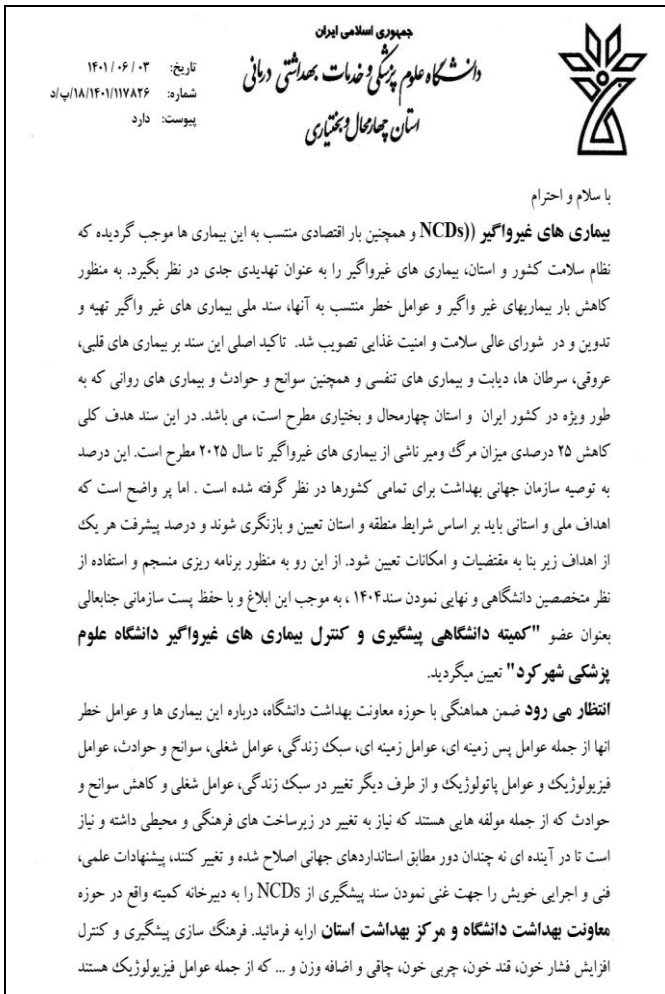 جمهوری اسلامی ایران
دانشگاه علوم پزشکی و خدمات بهداشتی درمانی
استان چهارمحال و بختیاری
تاریخ: ۱۴۰۱/۰۶/۰۳
شماره: ۱۸/۱۴۰۱/۱۱۷۸۲۶/پ/د
پیوست: دارد
با سلام و احترام
بیماری های غیرواگیر ((NCDs و همچنین بار اقتصادی منتسب به این بیماری ها موجب گردیده که
نظام سلامت کشور و استان، بیماری های غیرواگیر را به عنوان تهدیدی جدی در نظر بگیرد. به منظور
کاهش بار بیماریهای غیر واگیر و عوامل خطر منتسب به آنها، سند ملی بیماری های غیر واگیر تهیه و
تدوین و در شورای عالی سلامت و امنیت غذایی تصویب شد. تاکید اصلی این سند بر بیماری های قلبی،
عروقی، سرطان ها، دیابت و بیماری های تنفسی و همچنین سوانح و حوادث و بیماری های روانی که به
طور ویژه در کشور ایران و استان چهارمحال و بختیاری مطرح است، می باشد. در این سند هدف کلی
کاهش ۲۵ درصدی میزان مرگ ومیر ناشی از بیماری های غیرواگیر تا سال ۲۰۲۵ مطرح است. این درصد
به توصیه سازمان جهانی بهداشت برای تمامی کشورها در نظر گرفته شده است . اما پر واضح است که
اهداف ملی و استانی باید بر اساس شرایط منطقه و استان تعیین و بازنگری شوند و درصد پیشرفت هر یک
از اهداف زیر بنا به مقتضیات و امکانات تعیین شود. از این رو به منظور برنامه ریزی منسجم و استفاده از
نظر متخصصین دانشگاهی و نهایی نمودن سند۱۴۰۴ ، به موجب این ابلاغ و با حفظ پست سازمانی جنابعالی
بعنوان عضو "کمیته دانشگاهی پیشگیری و کنترل بیماری های غیرواگیر دانشگاه علوم
پزشکی شهرکرد" تعیین میگردید.
انتظار می رود ضمن هماهنگی با حوزه معاونت بهداشت دانشگاه، درباره این بیماری ها و عوامل خطر
انها از جمله عوامل پس زمینه ای، عوامل زمینه ای، سبک زندگی، عوامل شغلی، سوانح و حوادث، عوامل
فیزیولوژیک و عوامل پاتولوژیک و از طرف دیگر تغییر در سبک زندگی، عوامل شغلی و کاهش سوانح و
حوادث که از جمله مولفه هایی هستند که نیاز به تغییر در زیرساخت های فرهنگی و محیطی داشته و نیاز
است تا در آینده ای نه چندان دور مطابق استانداردهای جهانی اصلاح شده و تغییر کنند، پیشنهادات علمی،
فنی و اجرایی خویش را جهت غنی نمودن سند پیشگیری از NCDs را به دبیرخانه کمیته واقع در حوزه
معاونت بهداشت دانشگاه و مرکز بهداشت استان ارایه فرمائید. فرهنگ سازی پیشگیری و کنترل
افزایش فشار خون، قند خون، چربی خون، چاقی و اضافه وزن و ... که از جمله عوامل فیزیولوژیک هستند